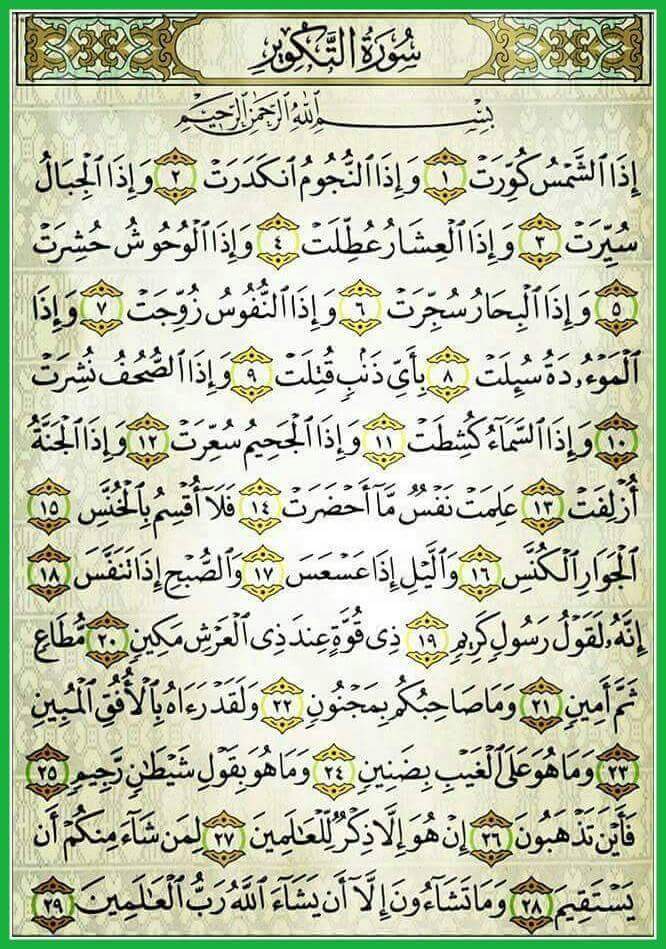 سُورَةُ التَّكْوِيرِ
بِسْمِ اللَّهِ الرَّحْمَٰنِ الرَّحِيمِ
إِذَا ٱلشَّمْسُ كُوِّرَتْ ١ وَإِذَا ٱلنُّجُومُ ٱنكَدَرَتْ ٢ وَإِذَا ٱلْجِبَالُ
سُيِّرَتْ ٣ وَإِذَا ٱلْعِشَارُ عُطِّلَتْ ٤ وَإِذَا ٱلْوُحُوشُ حُشِرَتْ
٥ وَإِذَا ٱلْبِحَارُ سُجِّرَتْ ٦ وَإِذَا ٱلنُّفُوسُ زُوِّجَتْ ٧ وَإِذَا
ٱلْمَوْءُۥدَةُ سُئِلَتْ ٨ بِأَىِّ ذَنۢبٍ قُتِلَتْ ٩ وَإِذَا ٱلصُّحُفُ نُشِرَتْ
١٠ وَإِذَا ٱلسَّمَآءُ كُشِطَتْ ١١ وَإِذَا ٱلْجَحِيمُ سُعِّرَتْ ١٢ وَإِذَا ٱلْجَنَّةُ
أُزْلِفَتْ ١٣ عَلِمَتْ نَفْسٌ مَّآ أَحْضَرَتْ ١٤ فَلَآ أُقْسِمُ بِٱلْخُنَّسِ ١٥
ٱلْجَوَارِ ٱلْكُنَّسِ ١٦ وَٱلَّيْلِ إِذَا عَسْعَسَ ١٧ وَٱلصُّبْحِ إِذَا تَنَفَّسَ ١٨
إِنَّهُۥ لَقَوْلُ رَسُولٍ كَرِيمٍ ١٩ ذِى قُوَّةٍ عِندَ ذِى ٱلْعَرْشِ مَكِينٍ ٢٠ مُّطَاعٍ
ثَمَّ أَمِينٍ ٢١ وَمَا صَاحِبُكُم بِمَجْنُونٍ ٢٢ وَلَقَدْ رَءَاهُ بِٱلْأُفُقِ ٱلْمُبِينِ
٢٣ وَمَا هُوَ عَلَى ٱلْغَيْبِ بِضَنِينٍ ٢٤ وَمَا هُوَ بِقَوْلِ شَيْطَٰنٍ رَّجِيمٍ ٢٥
فَأَيْنَ تَذْهَبُونَ ٢٦ إِنْ هُوَ إِلَّا ذِكْرٌ لِّلْعَٰلَمِينَ ٢٧ لِمَن شَآءَ مِنكُمْ أَن
يَسْتَقِيمَ ٢٨ وَمَا تَشَآءُونَ إِلَّآ أَن يَشَآءَ ٱللَّهُ رَبُّ ٱلْعَٰلَمِينَ ٢٩